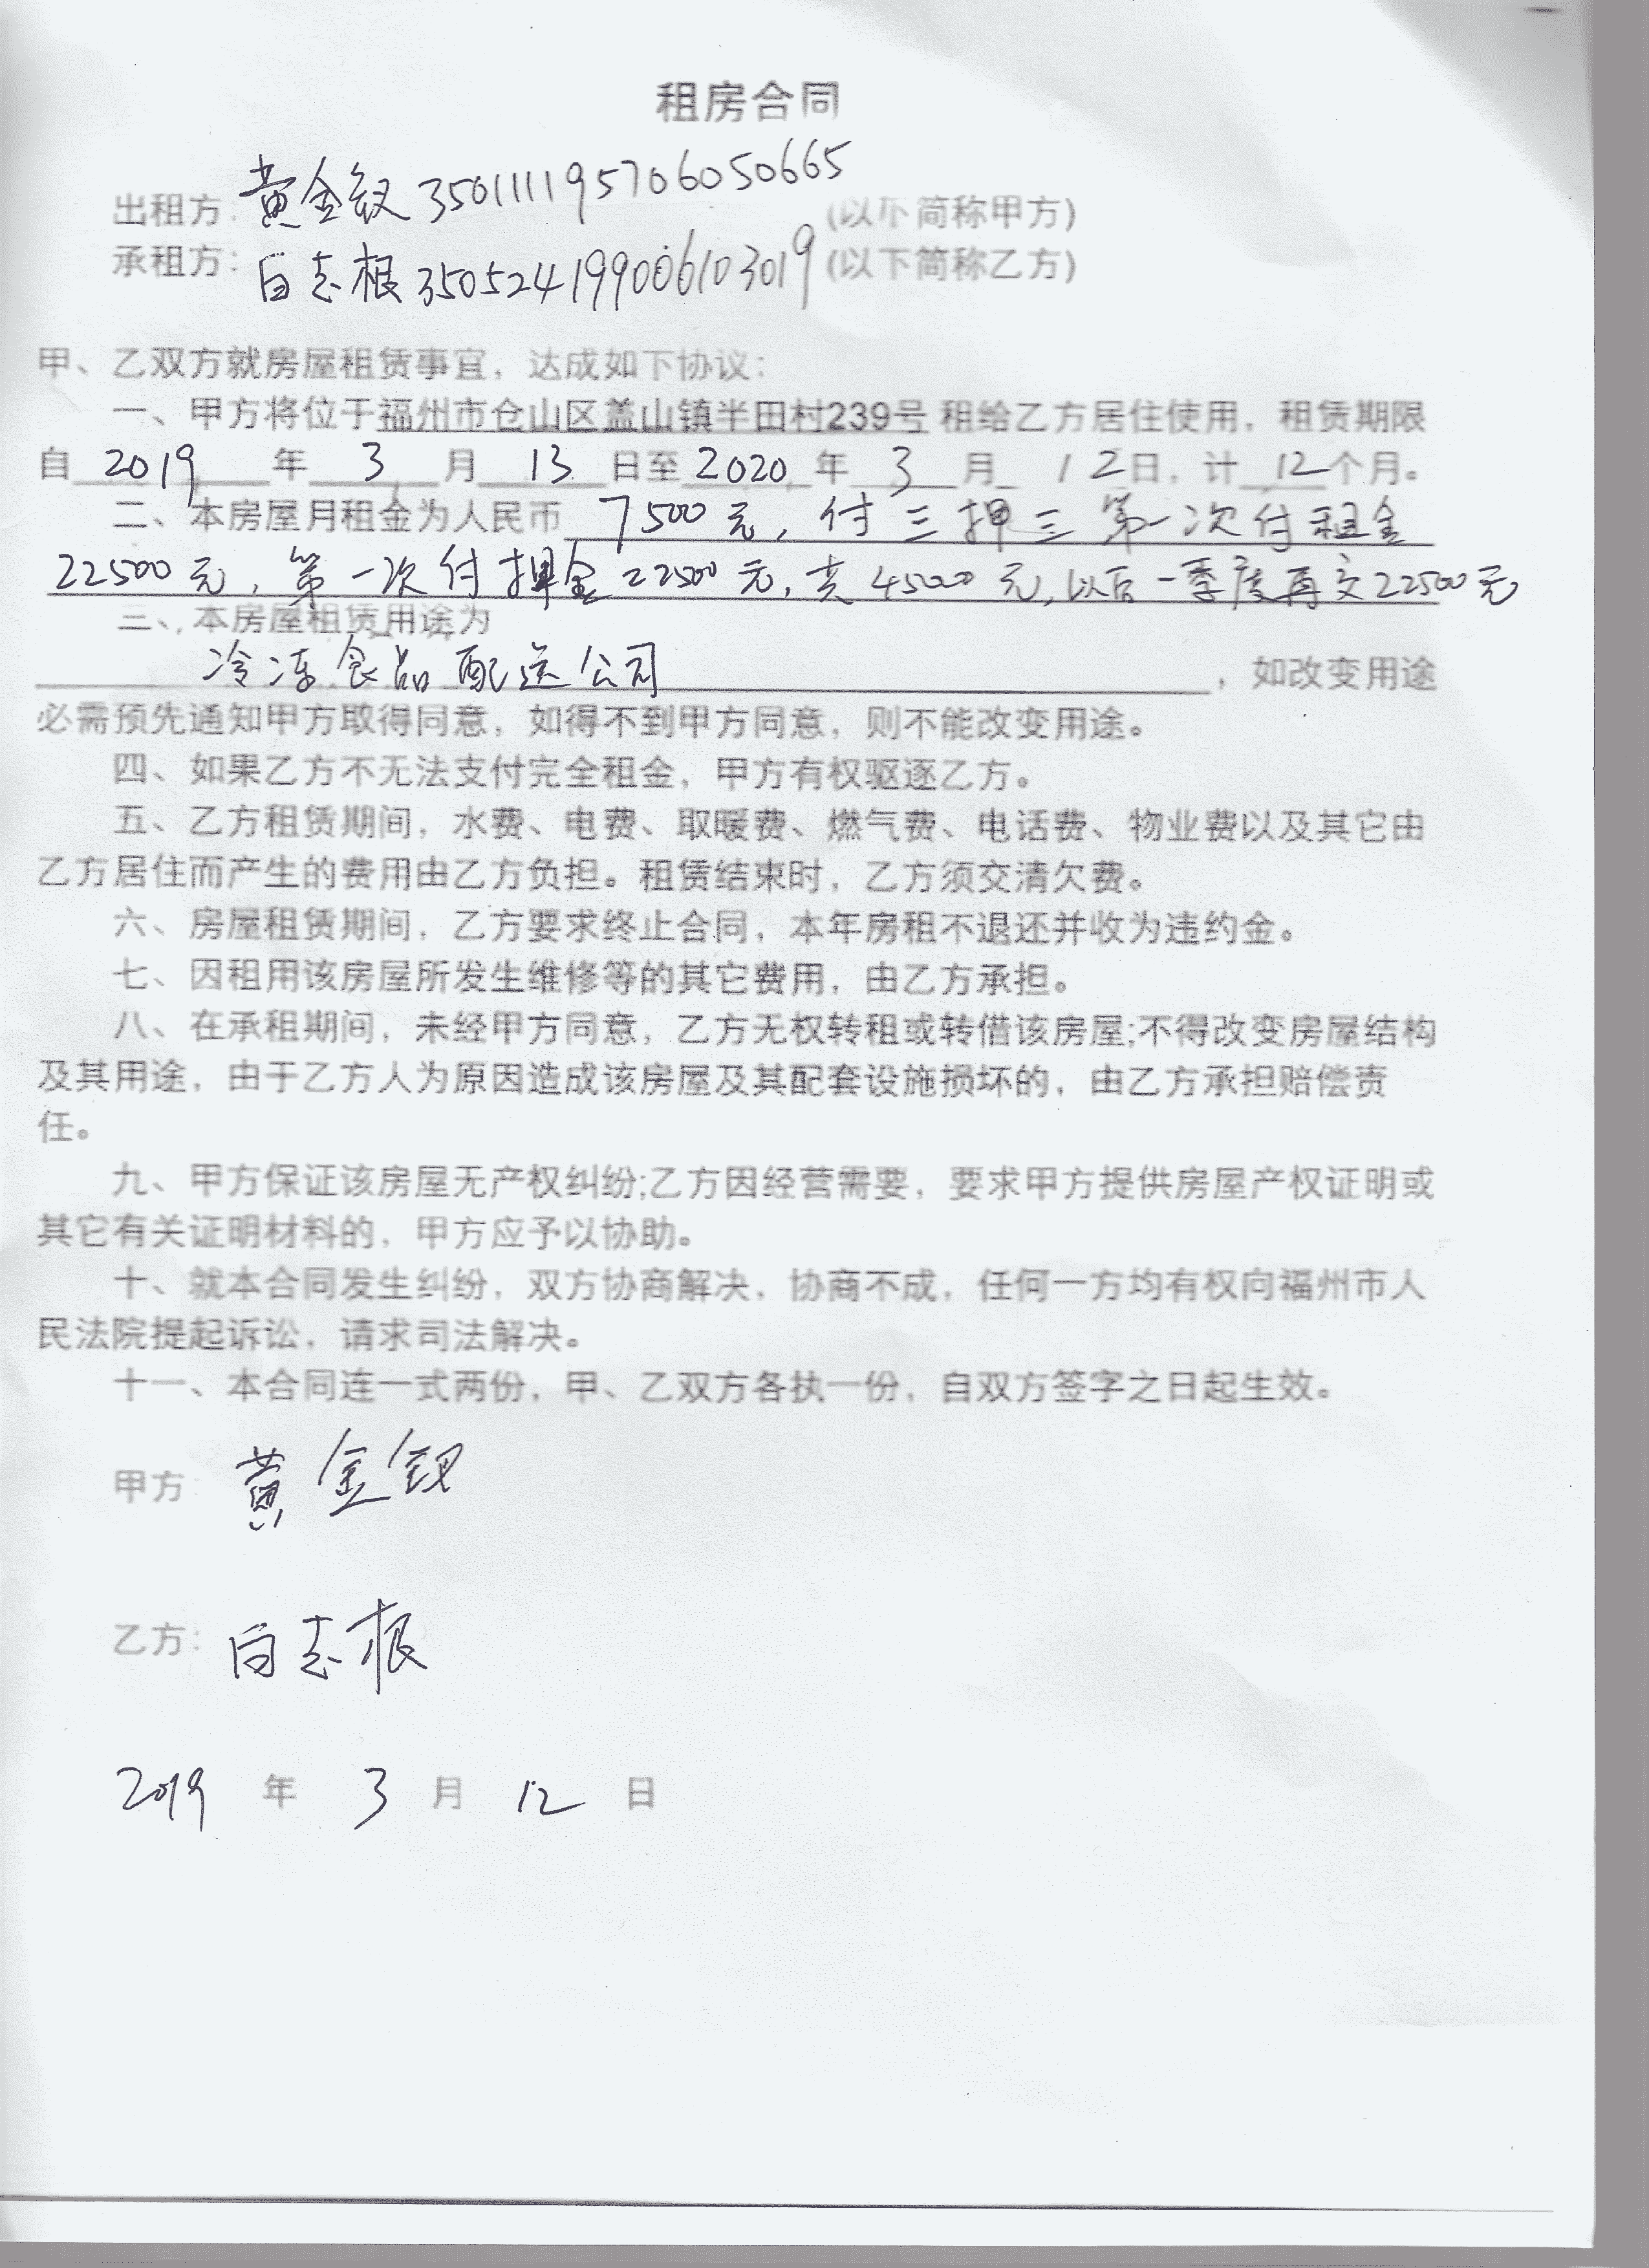 租房合同
出租方:黄金钗350111195706050665(以下简称甲方)
承租方:白志根350524199006103019(以下简称乙方)
甲、乙双方就房屋租赁事宜，达成如下协议:
一、甲方将位于福州市仓山区盖山镇半田村239号 租给乙方居住使用，租赁期限
自 2019 年 3 月 13 日至 2020 年 3 月 12日，计 12 个月。
二、本房屋月租金为人民币 7500元，付三押三第一次付租金
22500元，第一次付押金22500元，共45000元，以后一季度再交22500元
三、本房屋租赁用途为
冷冻食品配送公司，如改变用途
必需预先通知甲方取得同意，如得不到甲方同意，则不能改变用途。
四、如果乙方不无法支付完全租金，甲方有权驱逐乙方。
五、乙方租赁期间，水费、电费、取暖费、燃气费、电话费、物业费以及其它由
乙方居住而产生的费用由乙方负担。租赁结束时，乙方须交清欠费。
六、房屋租赁期间，乙方要求终止合同，本年房租不退还并收为违约金。
七、因租用该房屋所发生维修等的其它费用，由乙方承担。
八、在承租期间，未经甲方同意，乙方无权转租或转借该房屋;不得改变房屋结构
及其用途，由于乙方人为原因造成该房屋及其配套设施损坏的，由乙方承担赔偿责
任。
九、甲方保证该房屋无产权纠纷;乙方因经营需要，要求甲方提供房屋产权证明或
其它有关证明材料的，甲方应予以协助。
十、就本合同发生纠纷，双方协商解决，协商不成，任何一方均有权向福州市人
民法院提起诉讼，请求司法解决。
十一、本合同连一式两份，甲、乙双方各执一份，自双方签字之日起生效。
甲方:黄金钗
乙方:白志根
2019 年 3 月 12 日